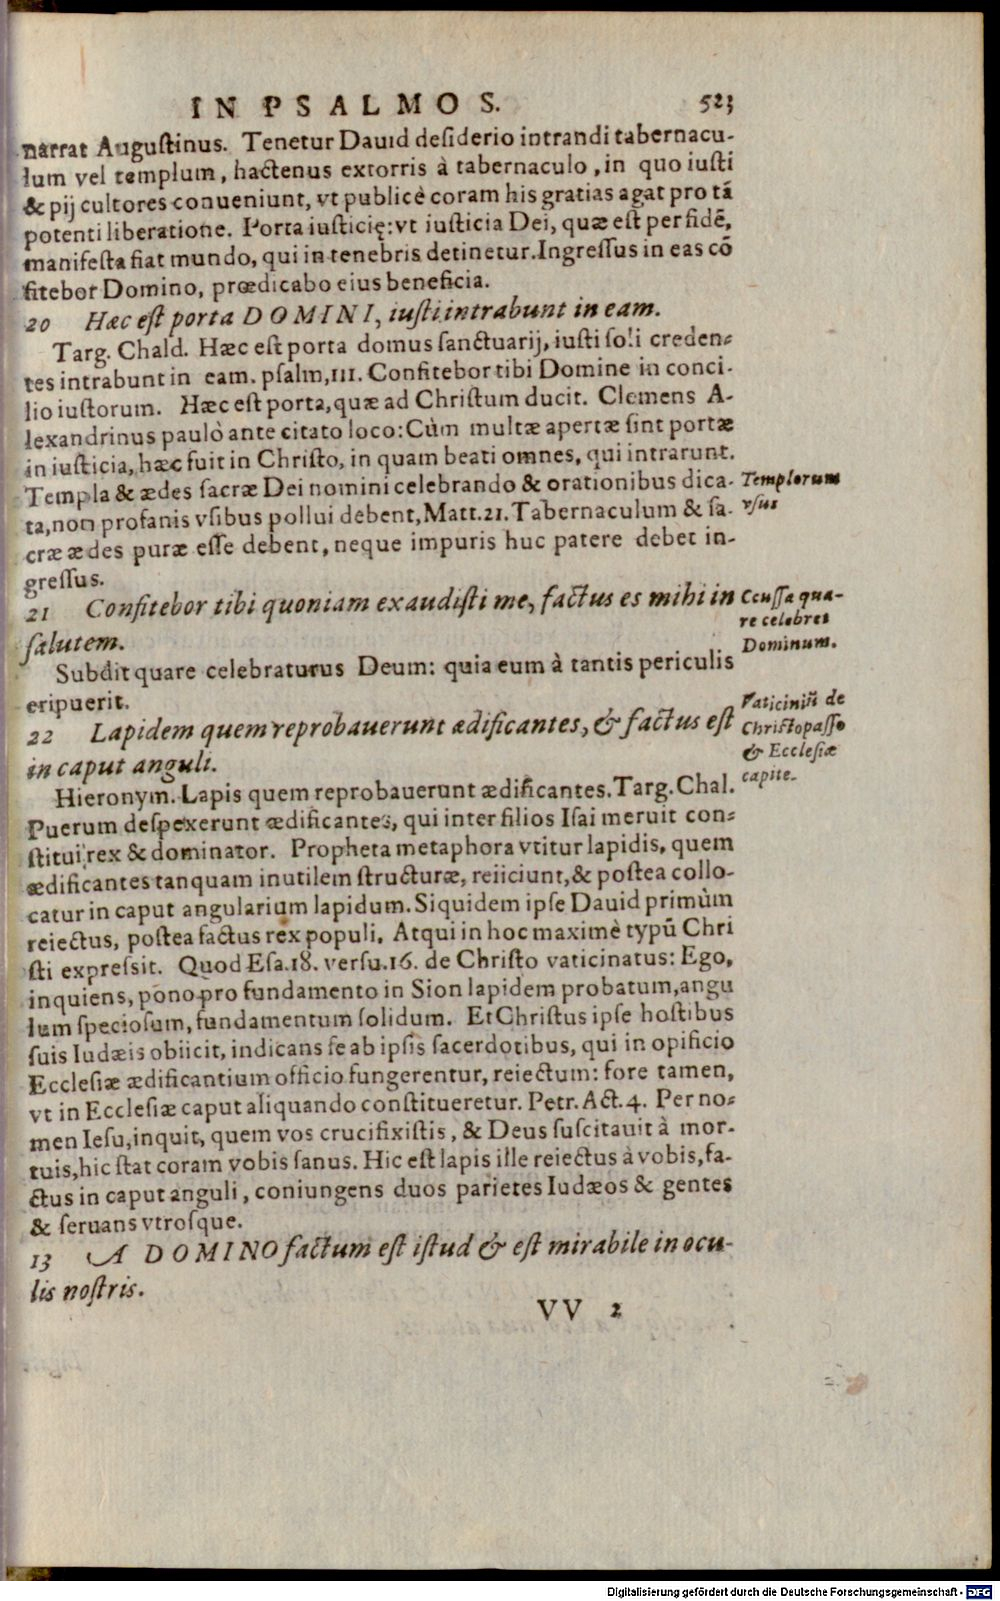 IN PSALMOS. 523
narrat Augustinus. Tenetur Dauid desiderio intrandi tabernacu-
lum vel templum, hactenus extorris à tabernaculo, in quo iusti
& pij cultores conueniunt, vt publicè coram his gratias agat pro tā
potenti liberatione. Porta iusticię: vt iusticia Dei, quæ est per fidē,
manifesta fiat mundo, qui in tenebris detinetur. Ingressus in eas cō
fitebor Domino, prædicabo eius beneficia.
20 Hæc est porta DOMINI, iusti intrabunt in eam.
Targ. Chald. Hæc est porta domus sanctuarij, iusti soli creden-
tes intrabunt in eam. psalm, 111. Confitebor tibi Domine in conci-
lio iustorum. Hæc est porta, quæ ad Christum ducit. Clemens A-
lexandrinus paulò ante citato loco: Cùm multæ apertæ sint portæ
in iusticia, hæc fuit in Christo, in quam beati omnes, qui intrarunt.
Templa & ædes sacræ Dei nomini celebrando & orationibus dica-
ta, non profanis vsibus pollui debent, Matt. 21. Tabernaculum & sa-
cræ ædes puræ esse debent, neque impuris huc patere debet in-
gressus.
Templorum
vsus
21 Confitebor tibi quoniam exaudisti me, factus es mihi in
salutem.
Causa qua-
re celebret
Dominum.
Subdit quare celebraturus Deum: quia eum à tantis periculis
eripuerit.
22 Lapidem quem reprobauerunt ædificantes, & factus est
in caput anguli.
Vaticiniū de
Christo passo
& Ecclesiæ
capite.
Hieronym. Lapis quem reprobauerunt ædificantes. Targ. Chal.
Puerum despexerunt ædificantes, qui inter filios Isai meruit con-
stitui rex & dominator. Propheta metaphora vtitur lapidis, quem
ædificantes tanquam inutilem structuræ, reiiciunt, & postea collo-
catur in caput angularium lapidum. Siquidem ipse Dauid primùm
reiectus, postea factus rex populi. Atqui in hoc maximè typū Chri
sti expressit. Quod Esa. 18. versu. 16. de Christo vaticinatus: Ego,
inquiens, pono pro fundamento in Sion lapidem probatum, angu
lum speciosum, fundamentum solidum. Et Christus ipse hostibus
suis Iudæis obiicit, indicans se ab ipsis sacerdotibus, qui in opificio
Ecclesiæ ædificantium officio fungerentur, reiectum: fore tamen,
vt in Ecclesiæ caput aliquando constitueretur. Petr. Act. 4. Per no-
men Iesu, inquit, quem vos crucifixistis, & Deus suscitauit à mor-
tuis, hic stat coram vobis sanus. Hic est lapis ille reiectus à vobis, fa-
ctus in caput anguli, coniungens duos parietes Iudæos & gentes
& seruans vtrosque.
13 A DOMINO factum est istud & est mirabile in ocu-
lis nostris.
VV 2
Digitalisierung gefördert durch die Deutsche Forschungsgemeinschaft - DFG